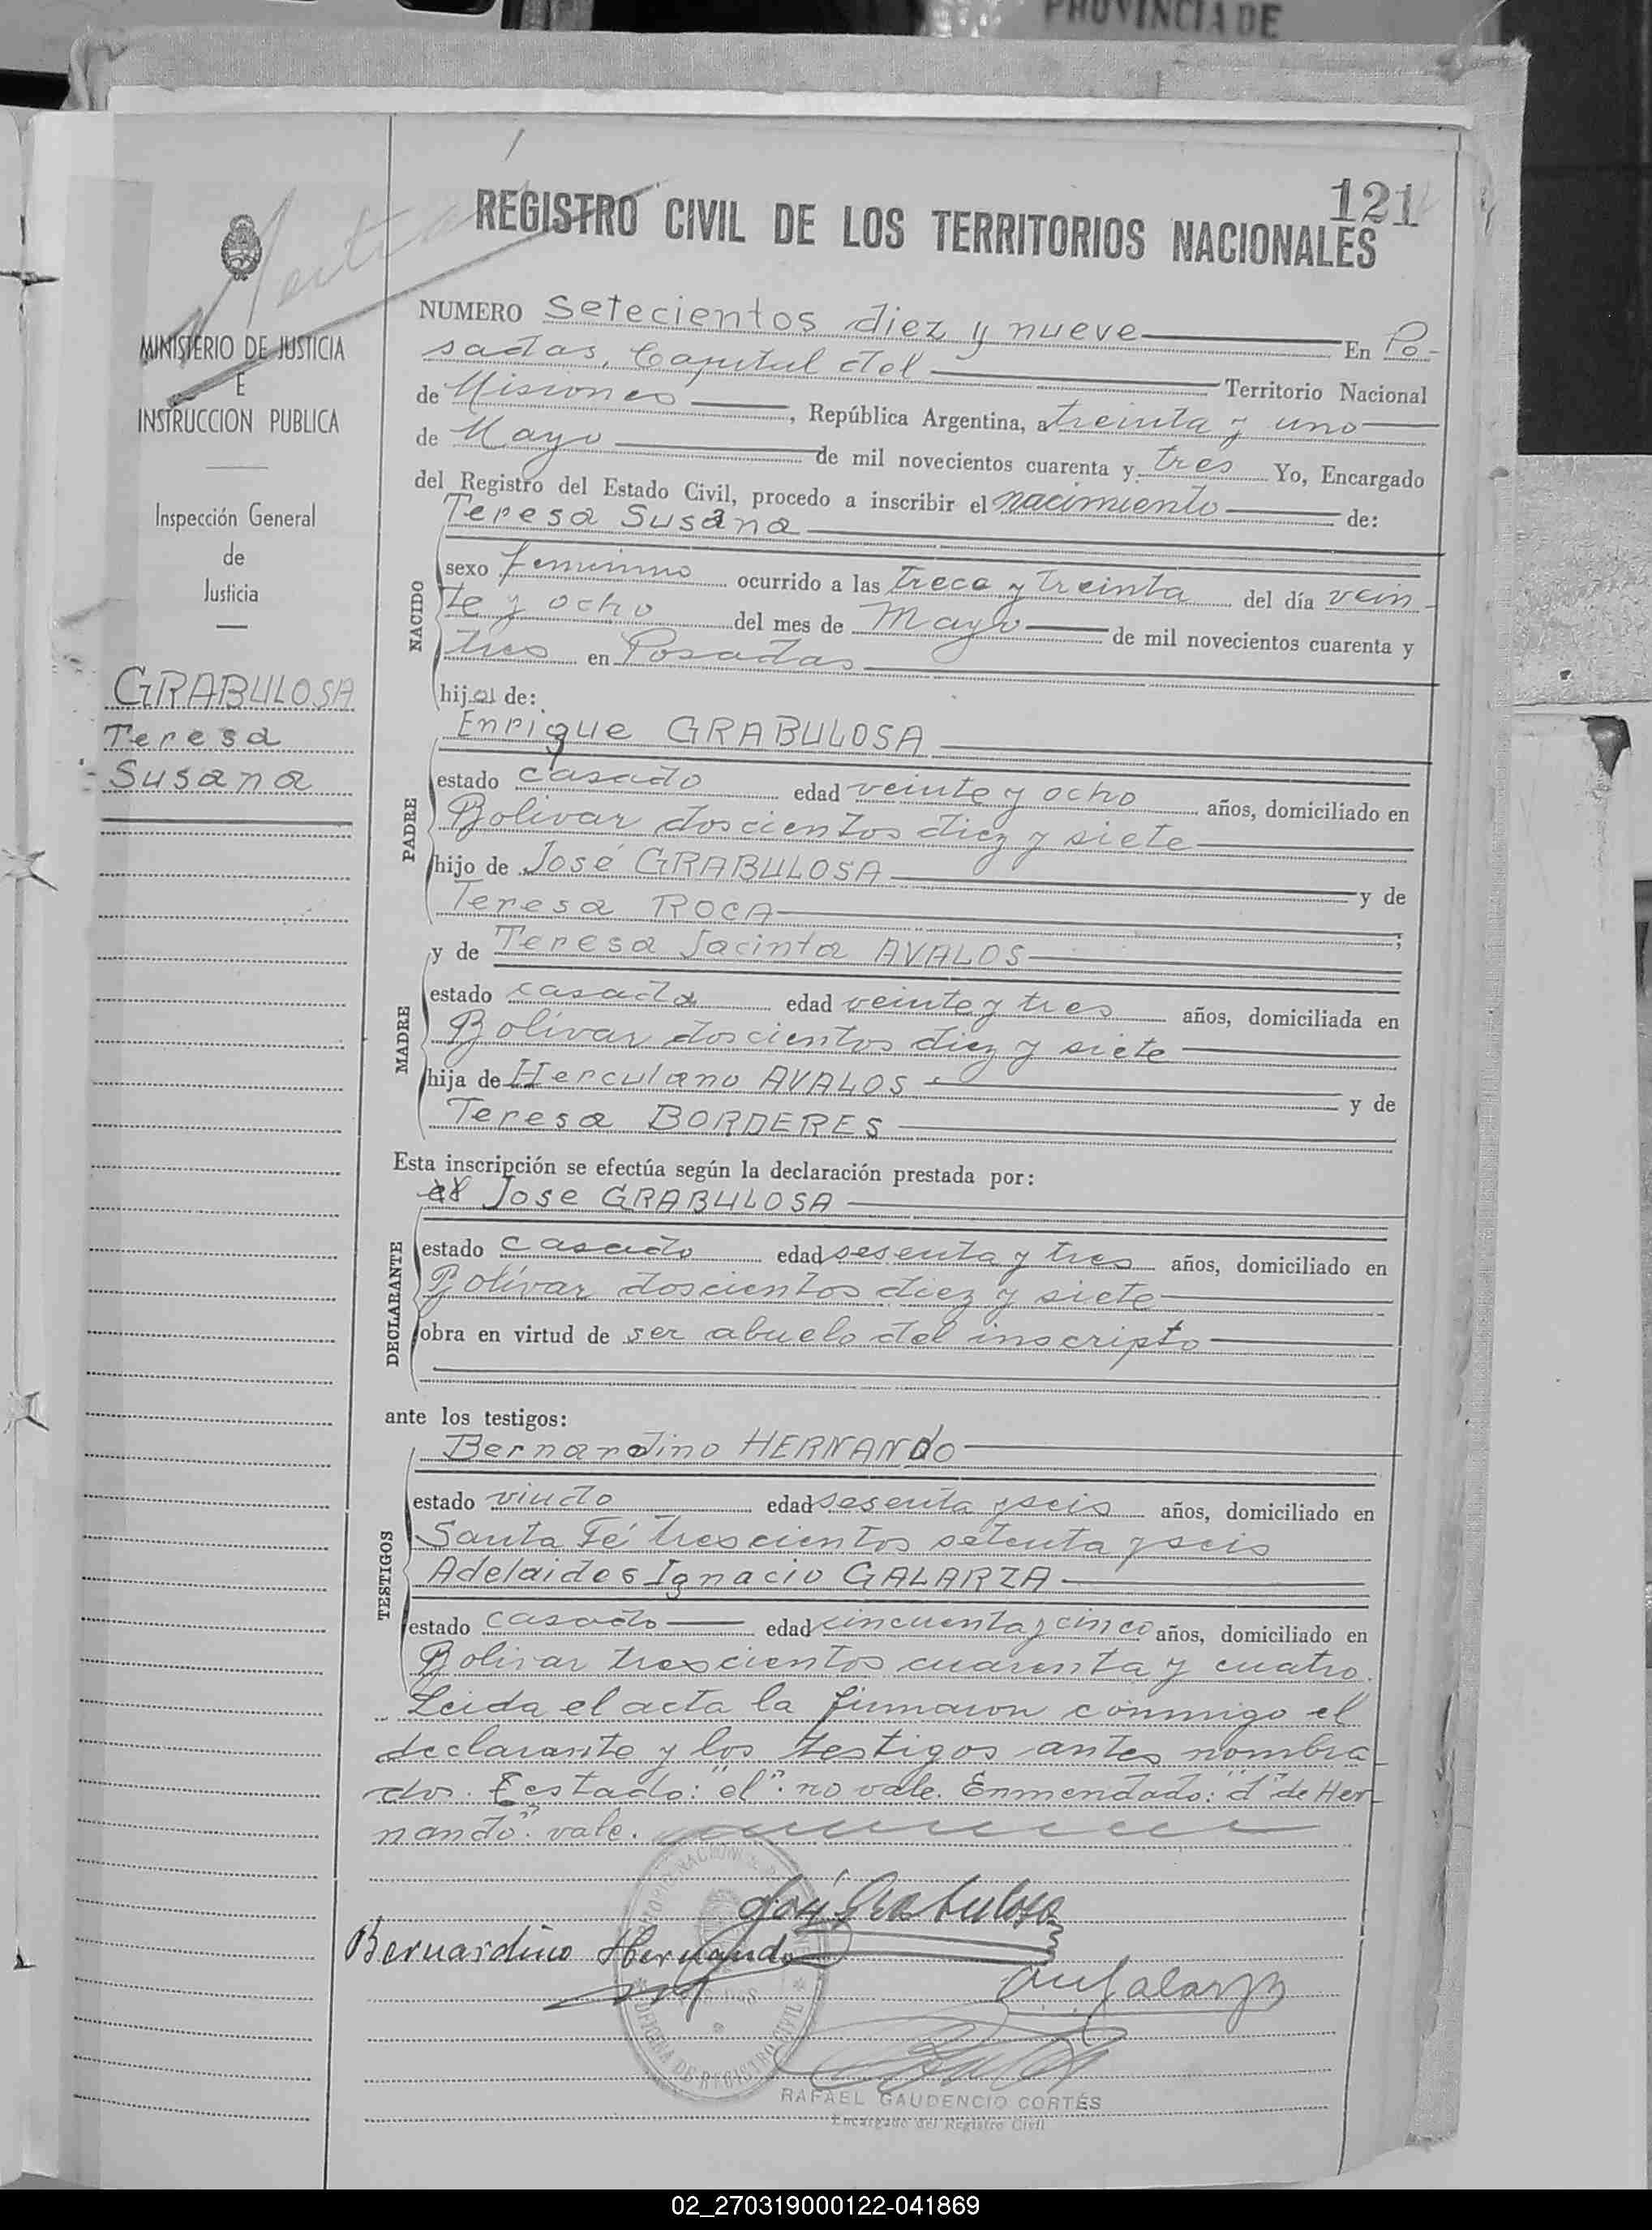 PROVINCIA DE
121
REGISTRO CIVIL DE LOS TERRITORIOS NACIONALES
MINISTERIO DE JUSTICIA
E
INSTRUCCION PUBLICA
Inspección General
de
Justicia
GRABULOSA
Teresa
Susana
NUMERO Setecientos diez y nueve En Po-
sadas, Capital del Territorio Nacional
de Misiones, República Argentina, a treinta y uno
de Mayo de mil novecientos cuarenta y tres Yo, Encargado
del Registro del Estado Civil, procedo a inscribir el nacimiento de:
Teresa Susana
NACIDO
sexo femenino ocurrido a las trece y treinta del día vein-
te y ocho del mes de Mayo de mil novecientos cuarenta y
tres en Posadas
hija de:
Enrique GRABULOSA
PADRE
estado casado edad veinte y ocho años, domiciliado en
Bolívar doscientos diez y siete
hijo de José GRABULOSA y de
Teresa ROCA;
y de Teresa Jacinta AVALOS
MADRE
estado casada edad veinte y tres años, domiciliada en
Bolívar doscientos diez y siete
hija de Herculano AVALOS y de
Teresa BORDERES
Esta inscripción se efectúa según la declaración prestada por:
el Jose GRABULOSA
DECLARANTE
estado casado edad sesenta y tres años, domiciliado en
Bolívar doscientos diez y siete
obra en virtud de ser abuelo del inscripto
ante los testigos:
Bernardino HERNANDO
TESTIGOS
estado viudo edad sesenta y seis años, domiciliado en
Santa Fé trescientos setenta y seis
Adelaides Ignacio GALARZA
estado casado edad cincuenta y cinco años, domiciliado en
Bolivar trescientos cuarenta y cuatro.
Leida el acta la firmaron conmigo el
declarante y los testigos antes nombra-
dos. Testado: "el": no vale. Enmendado: "d" de Her-
nando": vale.
José Grabulosa
Bernardino Hernando
Galarza
OFICINA DE REGISTRO CIVIL
RAFAEL GAUDENCIO CORTÉS
Encargado del Registro Civil
02_270319000122-041869